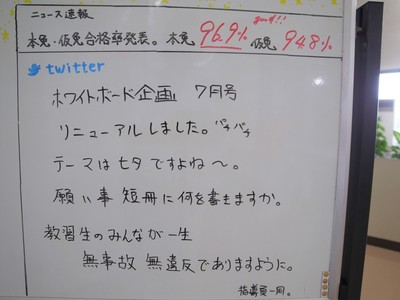 ニュース速報
good!!
本免・仮免合格率発表。本免 96.9% 仮免 94.8%
twitter
ホワイトボード企画 7月号
リニューアルしました。パチパチ
テーマは七夕ですよね〜。
願い事 短冊に何を書きますか。
教習生のみんなが一生
無事故 無違反でありますように。
指導員一同。